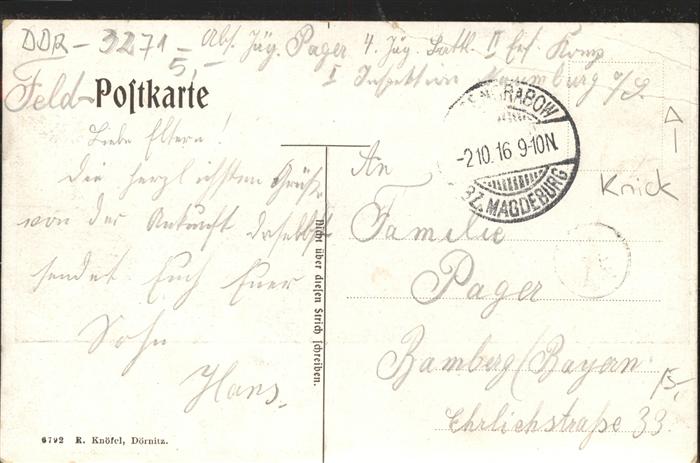 DDR - 3271 -
5,-
Abs. Jäg. Pager 4. Jäg. Batl. II Ers. Komp
I Inspektion Naumburg a/S.
Feld-Postkarte
GRABOW
-2.10.16 9-10N.
BZ. MAGDEBURG
Knick
Liebe Eltern!
Die herzlichsten Grüße
von der Ankunft daselbst
sendet Euch Euer
Sohn
Hans.
nicht über diesen Strich schreiben.
An
Familie
Pager
Bamberg/Bayern
Ehrlichstraße 33.
15,-
6792 R. Knöfel, Dörnitz.